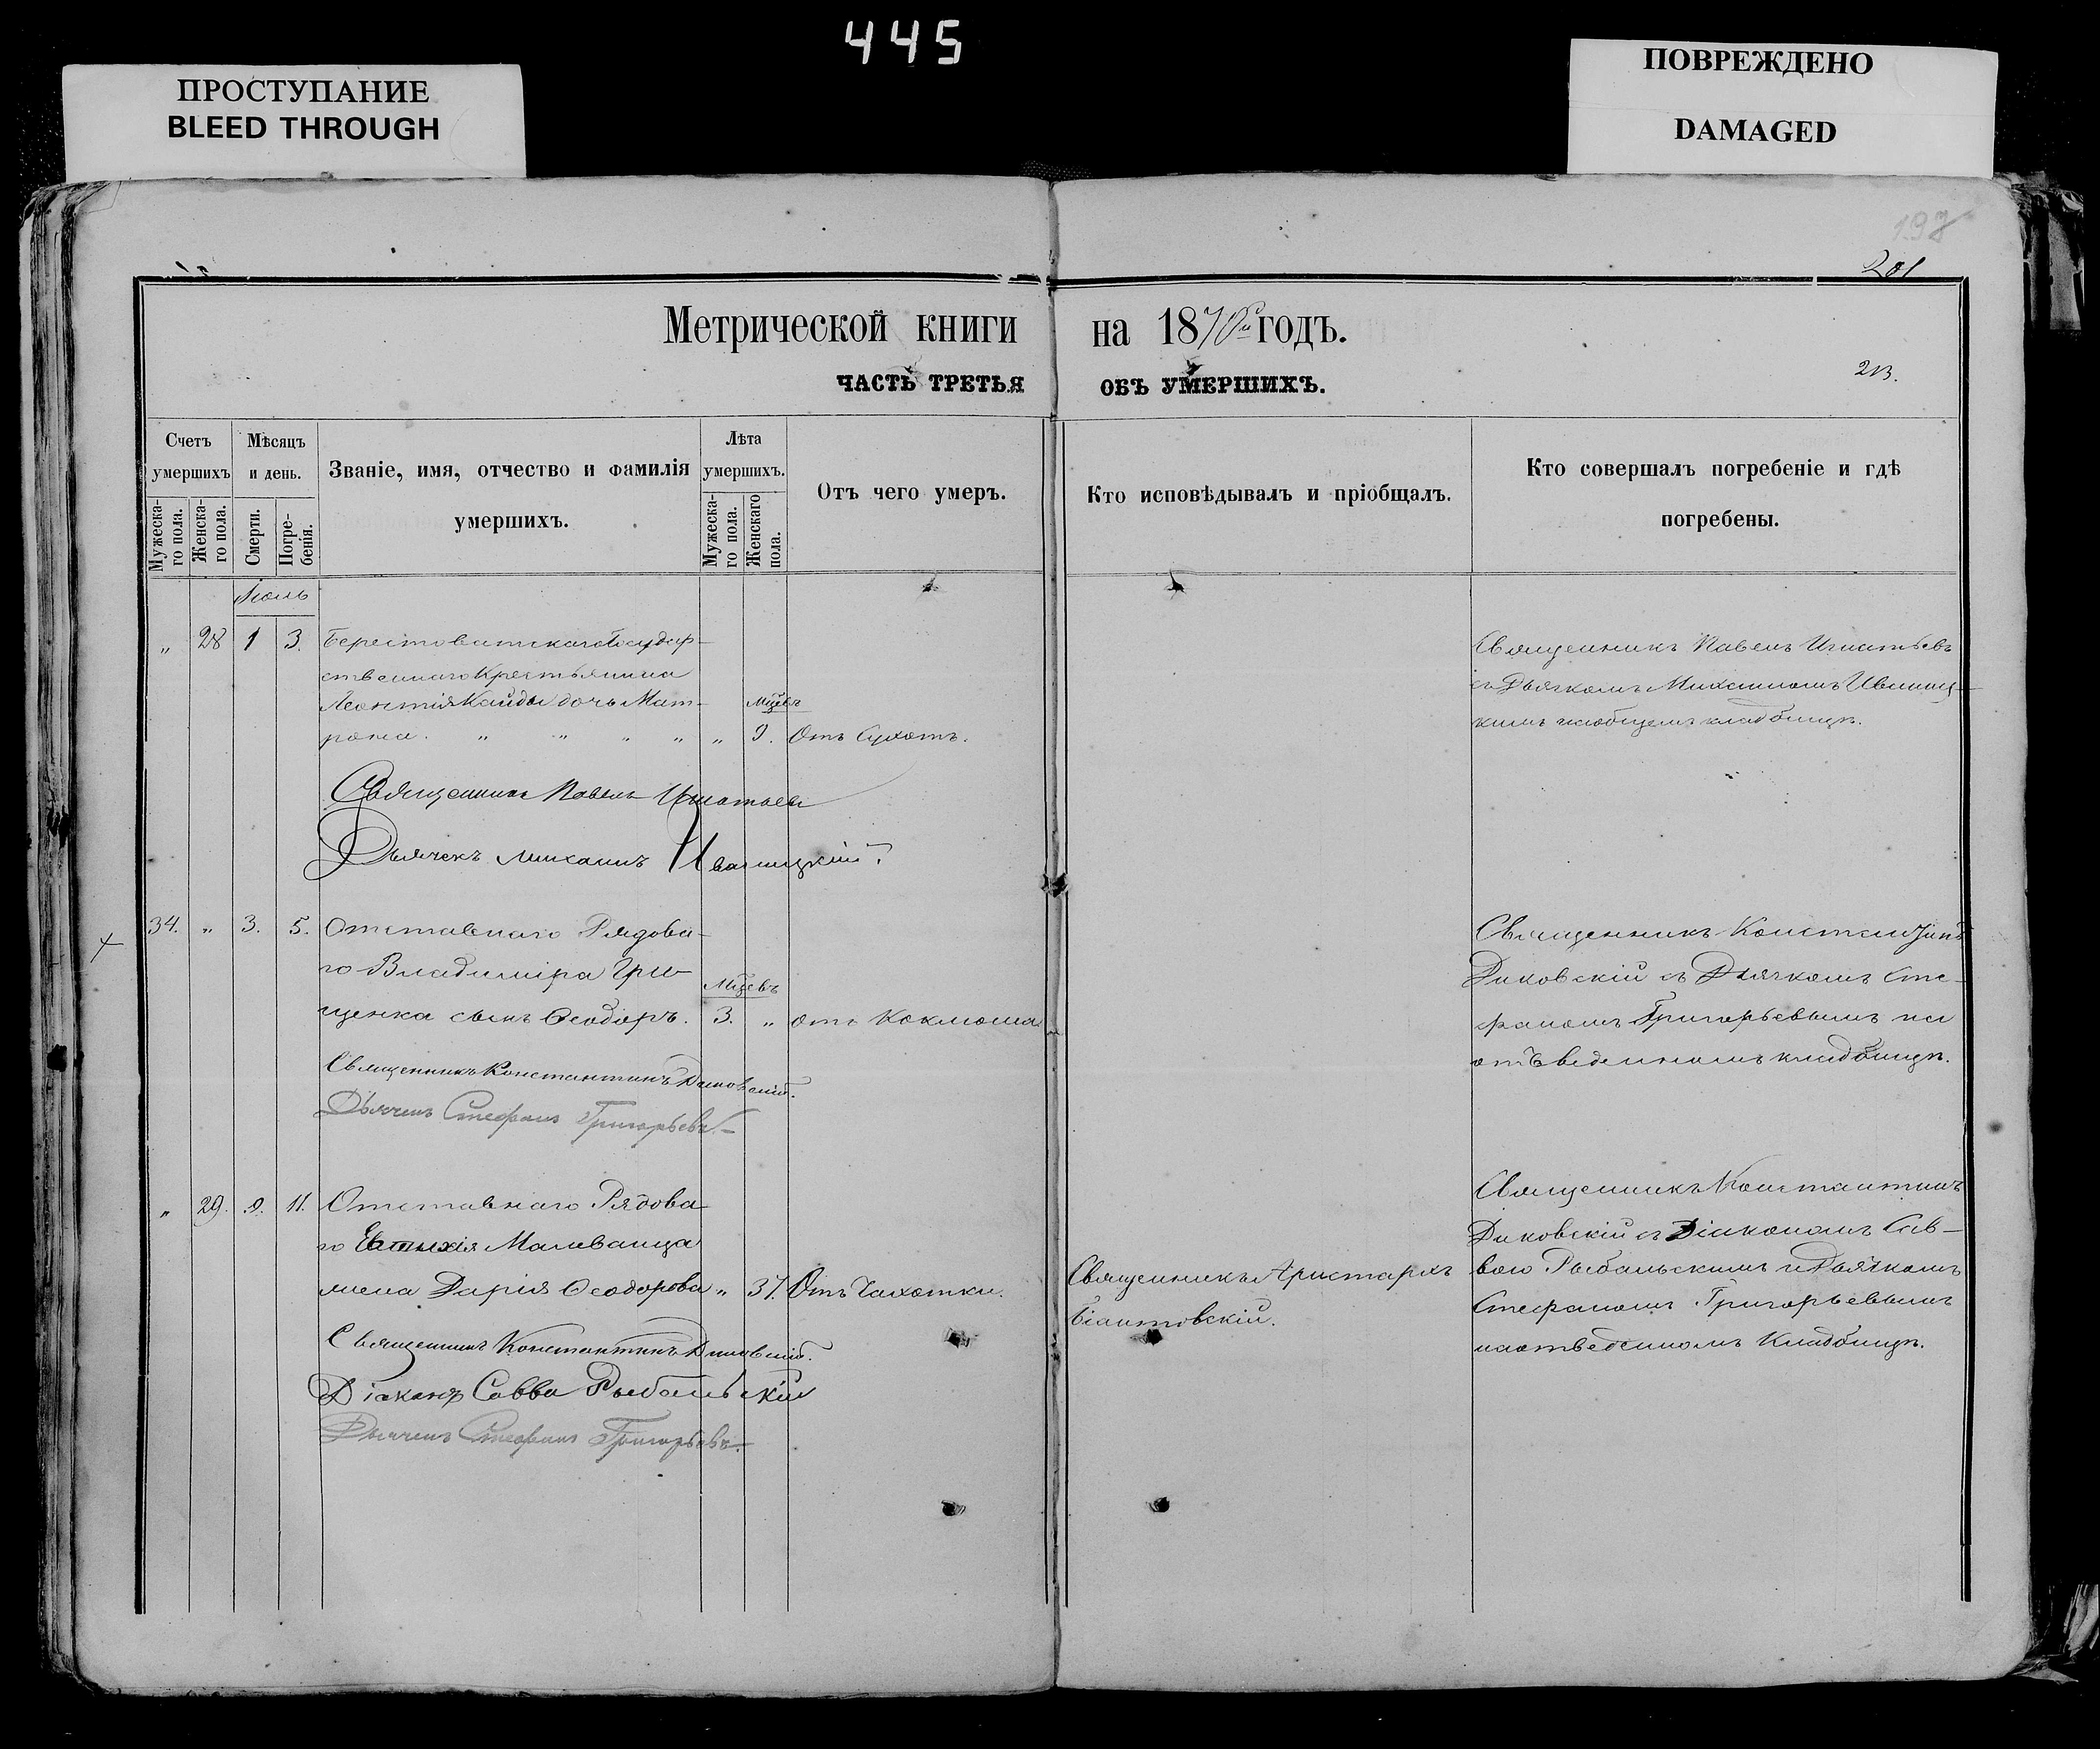 445
ПРОСТУПАНИЕ
BLEED THROUGH
ПОВРЕЖДЕНО
DAMAGED
197
201
Метрической книги на 1870й годъ.
ЧАСТЬ ТРЕТЬЯ ОБЪ УМЕРШИХЪ.
213.
Счетъ умершихъ
Мужеска-го пола.
Женска-го пола.
Мѣсяцъ и день.
Смерти.
Погре-бенія.
Званіе, имя, отчество и фамилія умершихъ.
Лѣта умершихъ.
Мужеска-го пола.
Женскаго пола.
Отъ чего умеръ.
Кто исповѣдывалъ и пріобщалъ.
Кто совершалъ погребеніе и гдѣ погребены.
Іюль
„ 28 1 3. Берестоватскаго Государ-
ственнаго Крестьянина
Леонтія Кайды дочь Мат-
рона. „ „ „ „ „ Мцевъ 9. Отъ Сухотъ.
Священникъ Павелъ Игнатьевъ
съ Дьячкомъ Михаиломъ Иваниц-
кимъ наобщемъ кладбищѣ.
Священникъ Павелъ Игнатьевъ
Дьячекъ Михаилъ Иваницкій.
34. „ 3. 5. Отставнаго Рядова-
го Владиміра Гри-
щенка сынъ Ѳеодоръ. Мцевъ 3. „ отъ Коклюша
Священникъ Константинъ
Диковскій съ Дьячкомъ Сте-
фаномъ Григорьевымъ на
отъведенномъ кладбищѣ.
Священникъ Константинъ Диковскій.
Дьячекъ Стефанъ Григорьевъ.
„ 29. 9. 11. Отставнаго Рядова-
го Евтихія Малеванца
жена Дарія Ѳеодорова „ 37. Отъ Чахотки.
Священникъ Аристархъ
Священникъ Константинъ
Диковскій съ Діакономъ Сав-
вою Рыбальскимъ и Дьячкомъ
Стефаномъ Григорьевымъ
наотведенномъ Кладбищѣ.
Священникъ Константинъ Диковскій.
Діаконъ Савва Рыбальскій
Дьячекъ Стефанъ Григорьевъ.